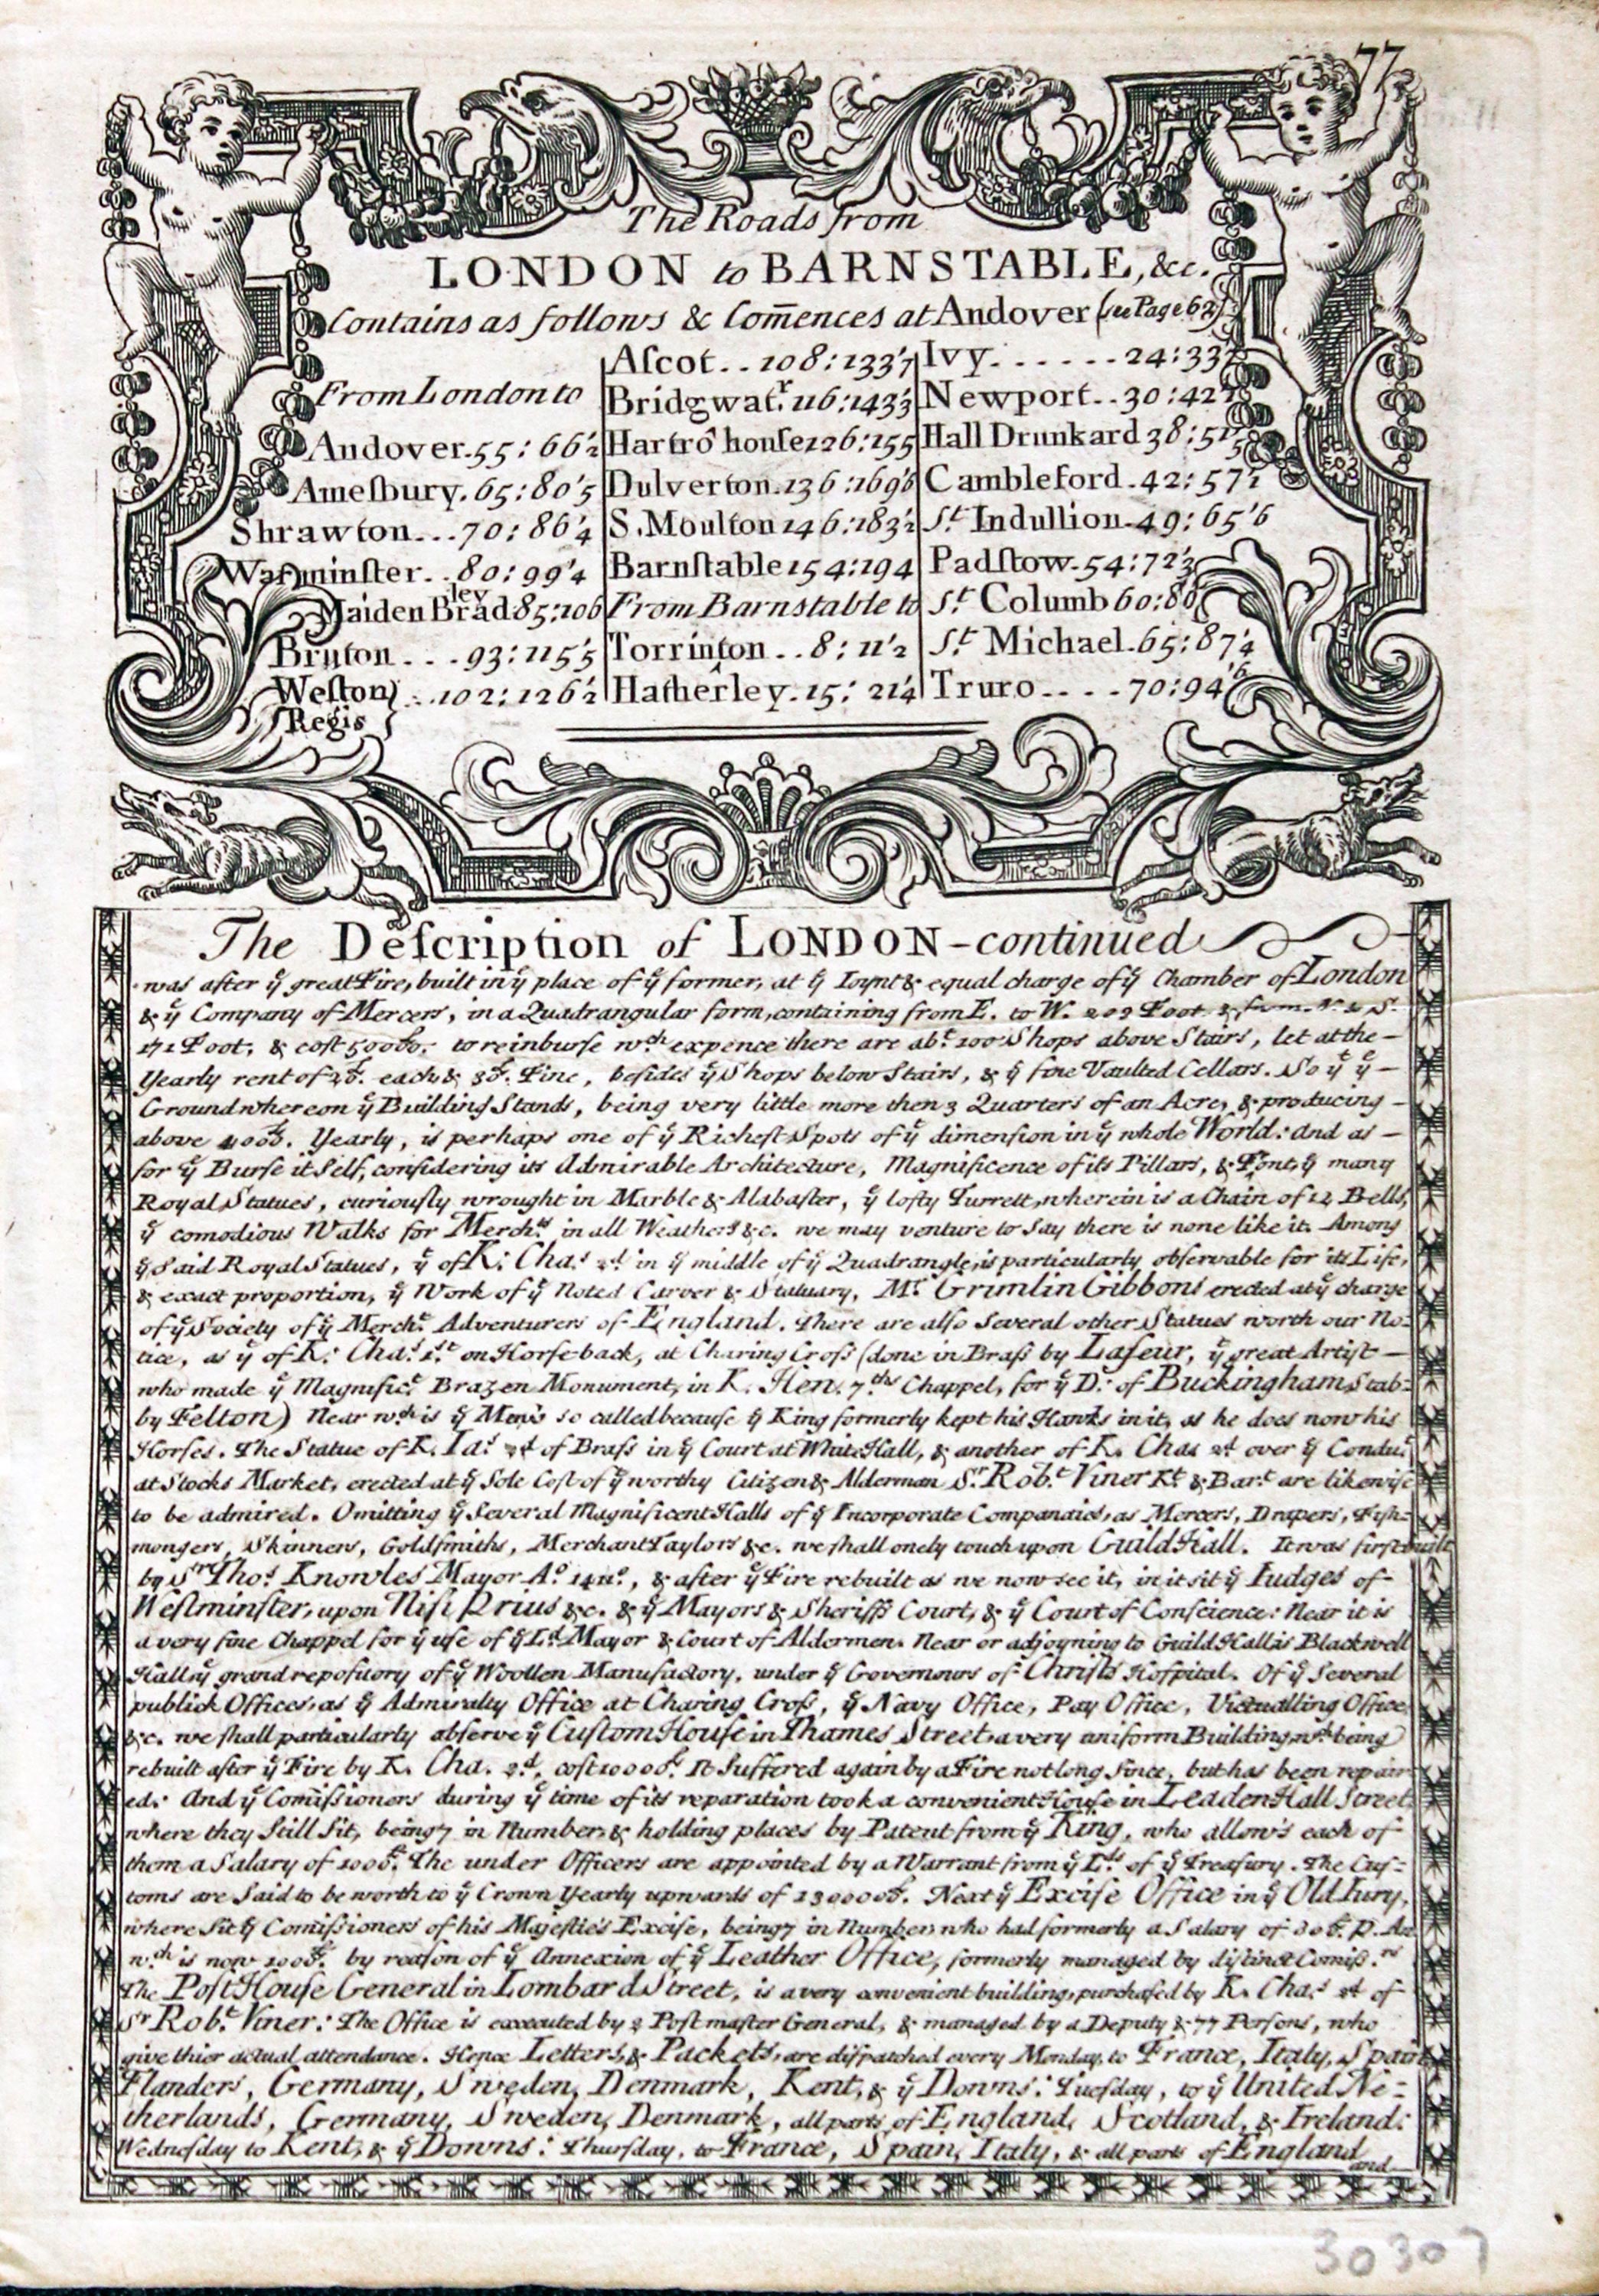 77
The Roads from
LONDON to BARNSTABLE, &c.
Contains as follows & Com̄ences at Andover (see Page 62)
From London to
Andover. 55 : 66'2
Ameſbury. 65 : 80'5
Shrawton... 70 : 86'4
Warminſter.. 80 : 99'4
Maiden Bradley 85 : 106
Bruton... 93 : 115'5
Weſton Regis } .. 102 : 126'2
Aſcot.. 108 : 133'7
Bridgwatr. 116 : 143'3
Hartrô houſe 126 : 155
Dulverton. 136 : 169'6
S. Moulton 146 : 183'2
Barnſtable 154 : 194
From Barnstable to
Torrinton.. 8 : 11'2
Hatherley. 15 : 21'4
Ivy...... 24 : 33'
Newport.. 30 : 42'
Hall Drunkard 38 : 51'5
Cambleford. 42 : 57'2
St. Indullion. 49 : 65'6
Padſtow. 54 : 72'3
St. Columb 60 : 80'
St. Michael. 65 : 87'4
Truro.... 70 : 94'6
The Deſcription of LONDON - continued
was after ye great Fire, built in ye place of ye former, at ye Ioynt & equal charge of ye Chamber of London
& ye Company of Mercers, in a Quadrangular form, containing from E. to W. 203 Foot & from N. to S.
171 Foot, & coſt 50000l. to reinburſe wch. expence there are abt. 200 Shops above Stairs, let at the -
Yearly rent of 20l. each & 30l. Fine, beſides ye Shops below Stairs, & ye fine Vaulted Cellars. So yt ye -
Ground whereon ye Building Stands, being very little more then 3 Quarters of an Acre, & producing -
above 4000l. Yearly, is perhaps one of ye Richeſt Spots of ye dimenſion in ye whole World: And as -
for ye Burſe it Self, conſidering its Admirable Architecture, Magnificence of its Pillars, & Font, ye many
Royal Statues, curiouſly wrought in Marble & Alabaſter, ye lofty Turrett, wherein is a Chain of 12 Bells,
ye comodious Walks for Merchts. in all Weathers &c. we may venture to Say there is none like it. Among
ye Said Royal Statues, ye of K. Chas. 2d. in ye middle of ye Quadrangle, is particularly obſervable for its Life,
& exact proportion, ye Work of ye Noted Carver & Statuary, Mr. Grimlin Gibbons erected at ye charge
of ye Society of ye Mercht. Adventurers of England. There are alſo Several other Statues worth our No=
tice, as ye of K. Chas. 1st. on Horſe-back, at Charing Croſs (done in Braſs by Laſeur, ye great Artiſt -
who made ye Magnifict. Brazen Monument, in K. Hen. 7ths Chappel, for ye D. of Buckingham, Stab=
by Felton) Near wch is ye Mews so called becauſe ye King formerly kept his Hawks in it, as he does now his
Horſes. The Statue of K. Ias. 2d of Braſs in ye Court at White Hall, & another of K. Chas 2d over ye Condut.
at Stocks Market, erected at ye Sole Coſt of ye worthy Citizen & Alderman Sr. Robt. Viner Kt. & Bart. are likewiſe
to be admired. Omitting ye Several Magnificent Halls of ye Incorporate Companies, as Mercers, Drapers, Fiſh=
mongers, Skinners, Goldſmiths, Merchant Taylors &c. we ſhall onely touch upon Guild Hall. It was firſt built
by Sr. Thos. Knowles Mayor Ao. 1411o., & after ye Fire rebuilt as we now see it, in it sit ye Iudges of -
Weſtminſter, upon Niſi Prius &c. & ye Mayors & Sheriffs Court, & ye Court of Conſcience: Near it is
a very fine Chappel for ye uſe of ye Ld. Mayor & Court of Aldermen. Near or adjoyning to Guild Hall is Blackwell
Hall ye grand repoſitory of ye Woollen Manufactory, under ye Governours of Chriſts Hoſpital. Of ye Several
publick Offices, as ye Admiralty Office at Charing Croſs, ye Navy Office, Pay Office, Victualling Office
&c. we ſhall particularly obſerve ye Cuſtom Houſe in Thames Street, a very uniform Building, wch being
rebuilt after ye Fire by K. Cha. 2d. coſt 10000l. It Suffered again by a Fire not long Since, but has been repair=
ed: And ye Com̄iſsioners during ye time of its reparation took a convenient Houſe in Leaden Hall Street
where they Still Sit, being 7 in Number, & holding places by Patent from ye King, who allow's each of
them a Salary of 1000l. The under Officers are appointed by a Warrant from ye Lds of ye Treaſury. The Cuſ=
toms are Said to be worth to ye Crown Yearly upwards of 130000l. Next ye Exciſe Office in ye Old Iury,
where Sit ye Comiſsioners of his Majeſties Exciſe, being 7 in Number, who had formerly a Salary of 800l. P. An
wch. is now 1000l. by reaſon of ye Annexion of ye Leather Office, formerly managed by diſtinct Comiſs.rs
The Poſt Houſe General in Lombard Street, is a very convenient building, purchaſed by K. Chas. 2d of
Sr Robt. Viner: The Office is executed by 2 Poſt maſter General, & managed by a Deputy & 77 Perſons, who
give thier actual attendance. Hence Letters, & Packets, are diſpatched every Monday, to France, Italy, Spain
Flanders, Germany, Sweden, Denmark, Kent, & ye Downs: Tueſday, to ye United Ne=
therlands, Germany, Sweden, Denmark, all parts of England, Scotland, & Ireland:
Wedneſday to Kent, & ye Downs: Thurſday, to France, Spain, Italy, & all parts of England
and
30307